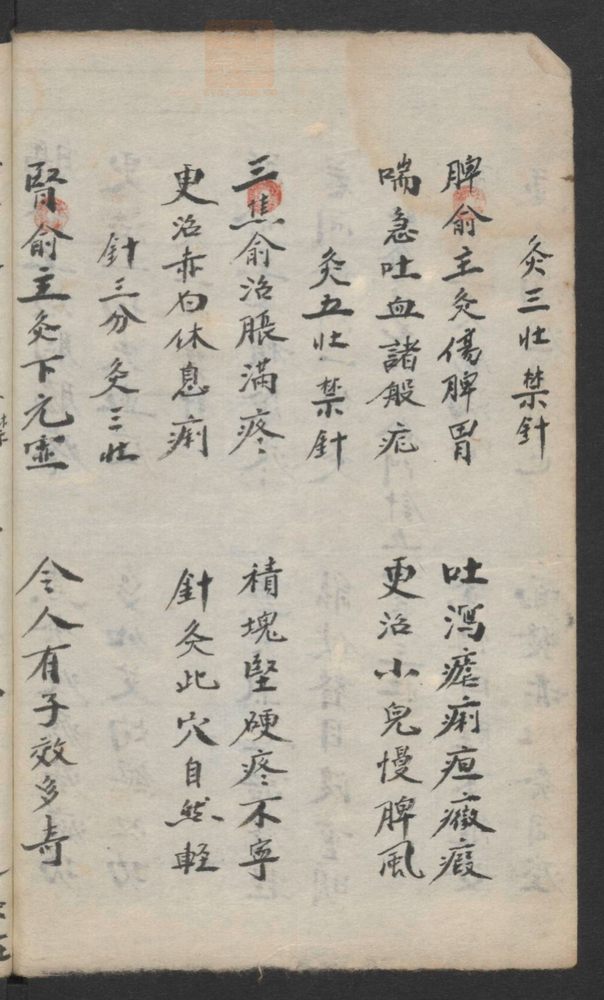 灸三壮禁針
脾俞主灸傷脾胃 吐瀉瘧痢疸癥瘕
喘急吐血諸般疰 更治小兒慢脾風
灸五壮禁針
三焦俞治脹滿疼 積塊堅硬疼不寧
更治赤白休息痢 針灸此穴自然輕
針三分灸三壮
腎俞主灸下元虛 令人有子效多奇